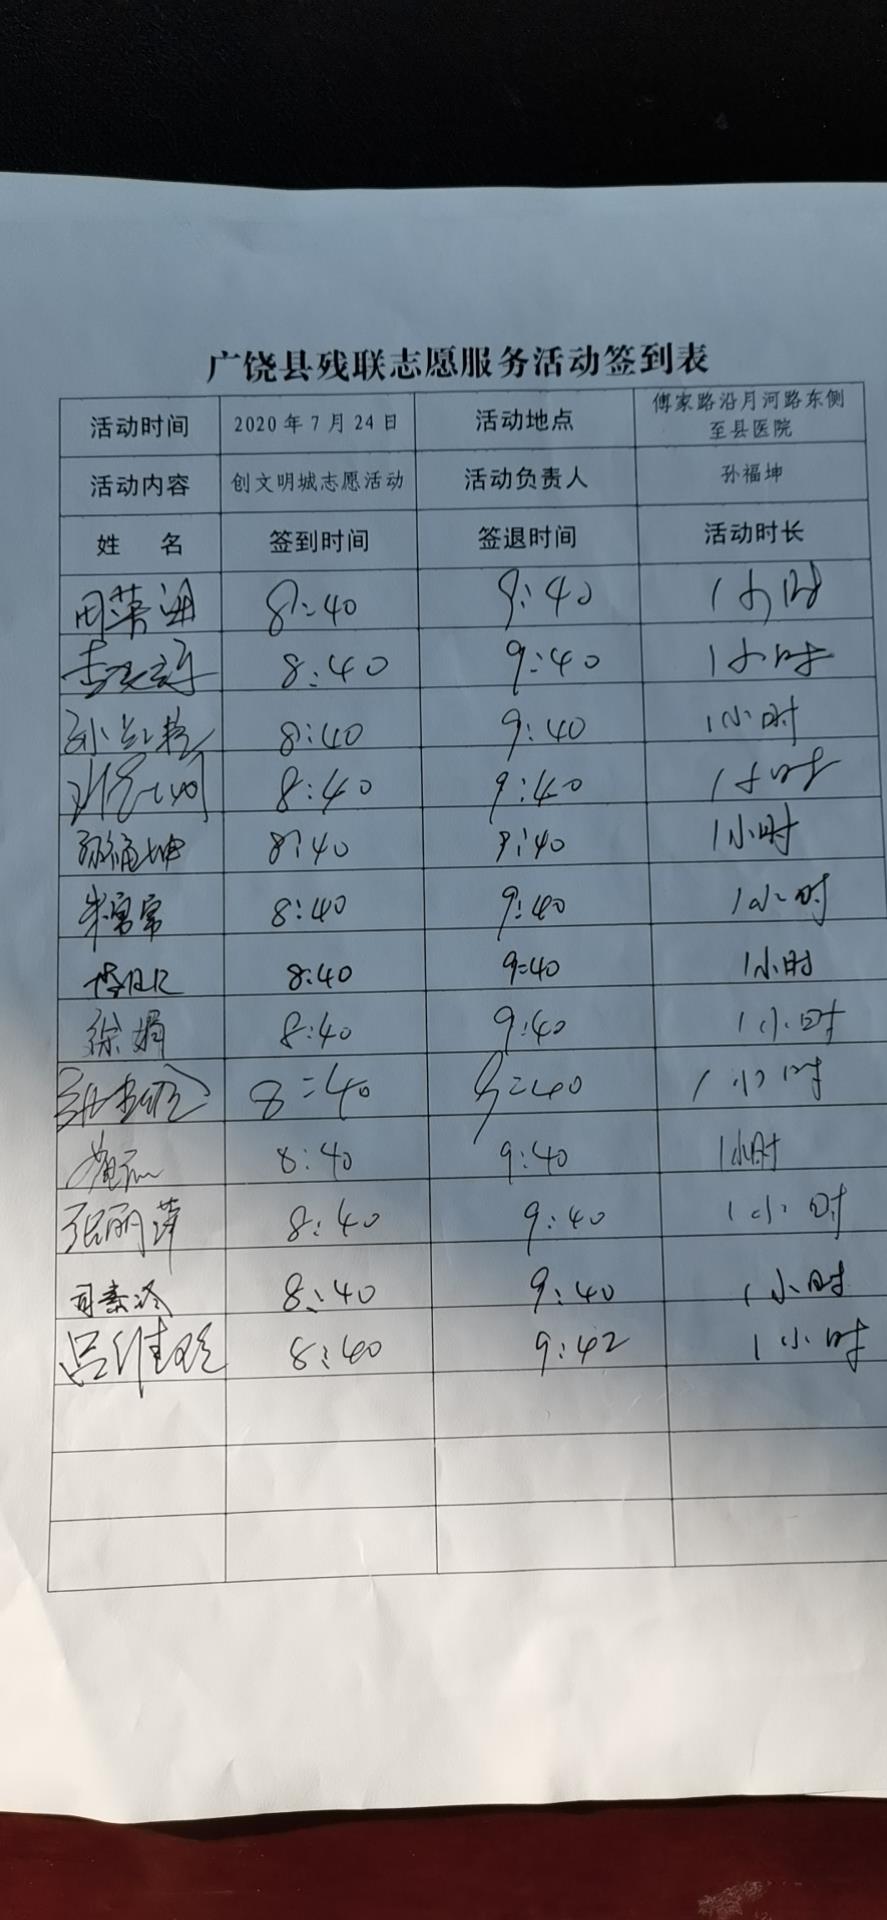 广饶县残联志愿服务活动签到表
活动时间 2020年7月24日 活动地点 傅家路沿月河路东侧
至县医院
活动内容 创文明城志愿活动 活动负责人 孙福坤
姓 名 签到时间 签退时间 活动时长
8:40 9:40 1小时
8:40 9:40 1小时
8:40 9:40 1小时
8:40 9:40 1小时
孙福坤 8:40 9:40 1小时
8:40 9:40 1小时
8:40 9:40 1小时
徐娟 8:40 9:40 1小时
8:40 9:40 1小时
8:40 9:40 1小时
张丽萍 8:40 9:40 1小时
8:40 9:40 1小时
8:40 9:42 1小时